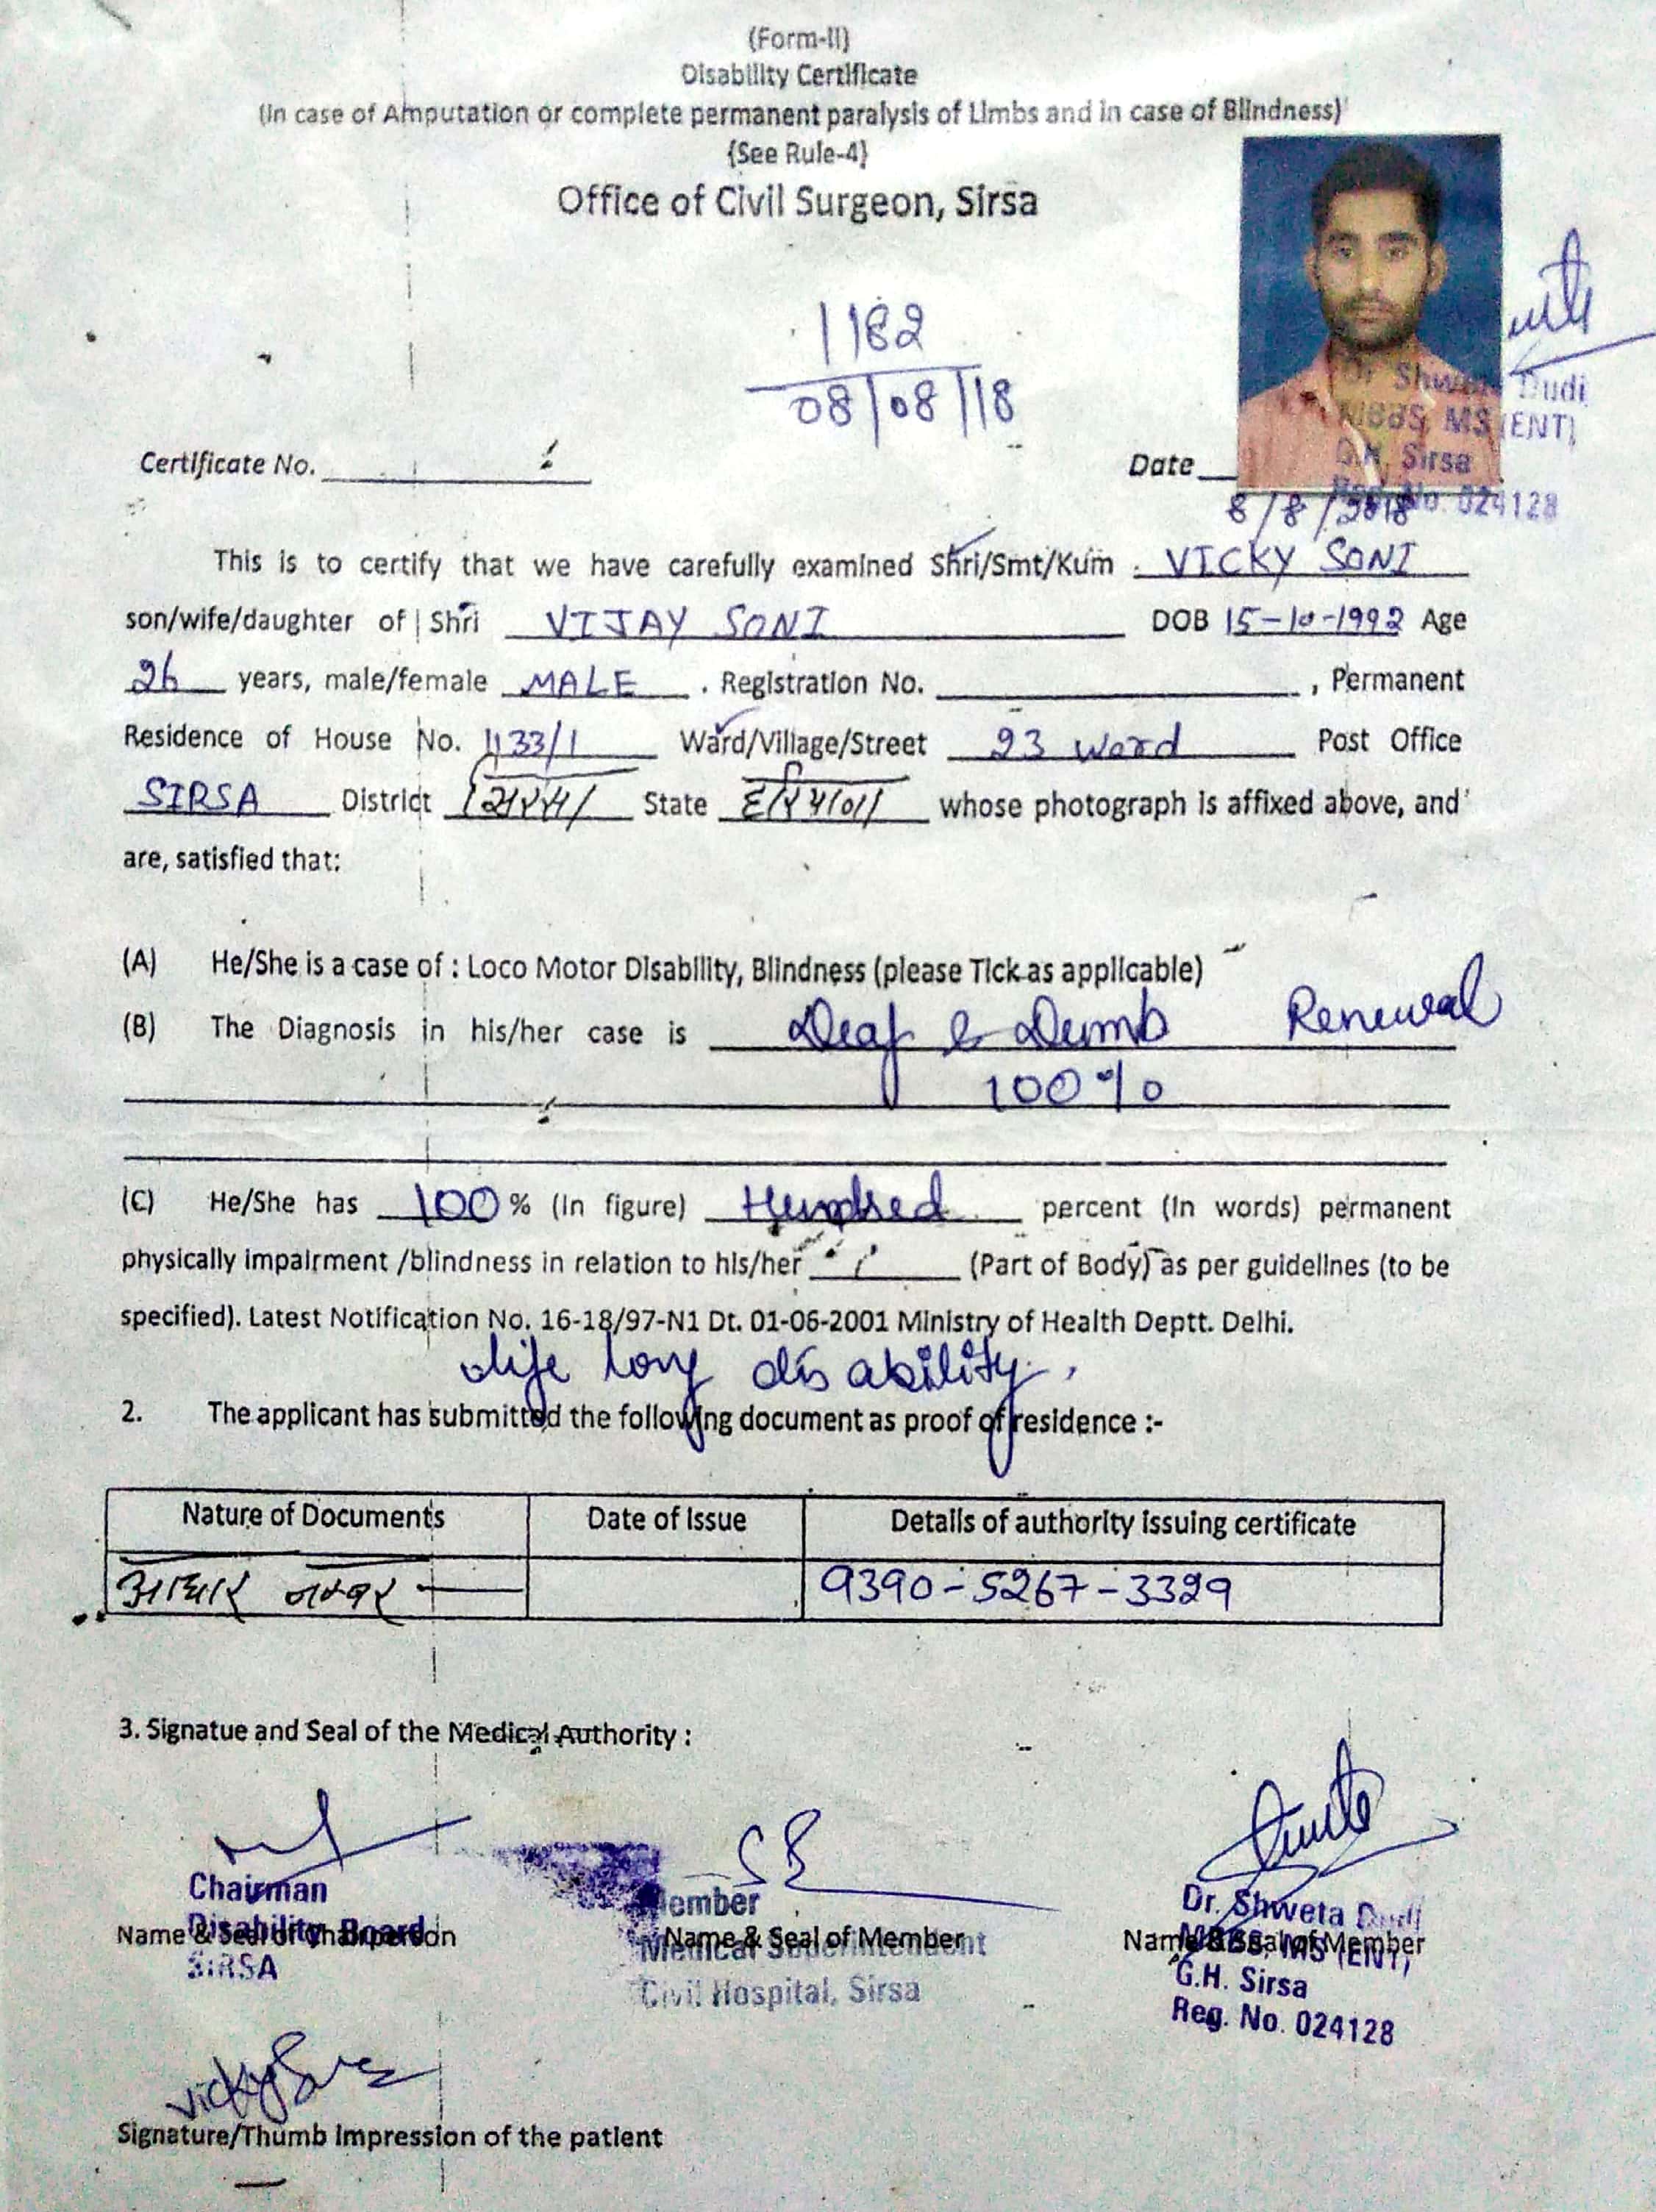 (Form-II)
Disability Certificate
(In case of Amputation or complete permanent paralysis of Limbs and in case of Blindness)
(See Rule-4)
Office of Civil Surgeon, Sirsa
1182
08/08/18
Dr Shweta Dudi
MBBS, MS (ENT)
G.H. Sirsa
Reg. No. 024128
Certificate No. Date
8/8/2018
This is to certify that we have carefully examined Shri/Smt/Kum . VICKY SONI
son/wife/daughter of Shri VIJAY SONI DOB 15-10-1992 Age
26 years, male/female MALE . Registration No. , Permanent
Residence of House No. 1133/1 Ward/Village/Street 23 Ward Post Office
SIRSA District सिरसा State हरियाणा whose photograph is affixed above, and
are, satisfied that:
(A) He/She is a case of : Loco Motor Disability, Blindness (please Tick as applicable)
(B) The Diagnosis in his/her case is Deaf & Dumb Renewal
100%
(C) He/She has 100 % (In figure) Hundred percent (In words) permanent
physically impairment /blindness in relation to his/her (Part of Body) as per guidelines (to be
specified). Latest Notification No. 16-18/97-N1 Dt. 01-06-2001 Ministry of Health Deptt. Delhi.
Life long disability.
2. The applicant has submitted the following document as proof of residence :-
Nature of Documents Date of Issue Details of authority issuing certificate
आधार नम्बर 9390-5267-3329
3. Signatue and Seal of the Medical Authority :
Chairman
Disability Board
SIRSA
Name & Seal of Chairperson
Member
Medical Superintendent
Civil Hospital, Sirsa
Name & Seal of Member
Dr. Shweta Dudi
MBBS, MS (ENT)
G.H. Sirsa
Reg. No. 024128
Name & Seal of Member
Vicky Soni
Signature/Thumb Impression of the patient